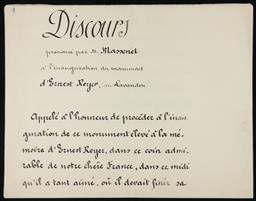 Discours
prononcé par M. Massenet
à l'inauguration du monument
d'Ernest Reyer, au Lavandou
Appelé à l'honneur de procéder à l'inau-
guration de ce monument élevé à la mé-
moire d'Ernest Reyer, dans ce coin admi-
rable de notre chère France, dans ce midi
qu'il a tant aimé, où il devait finir sa